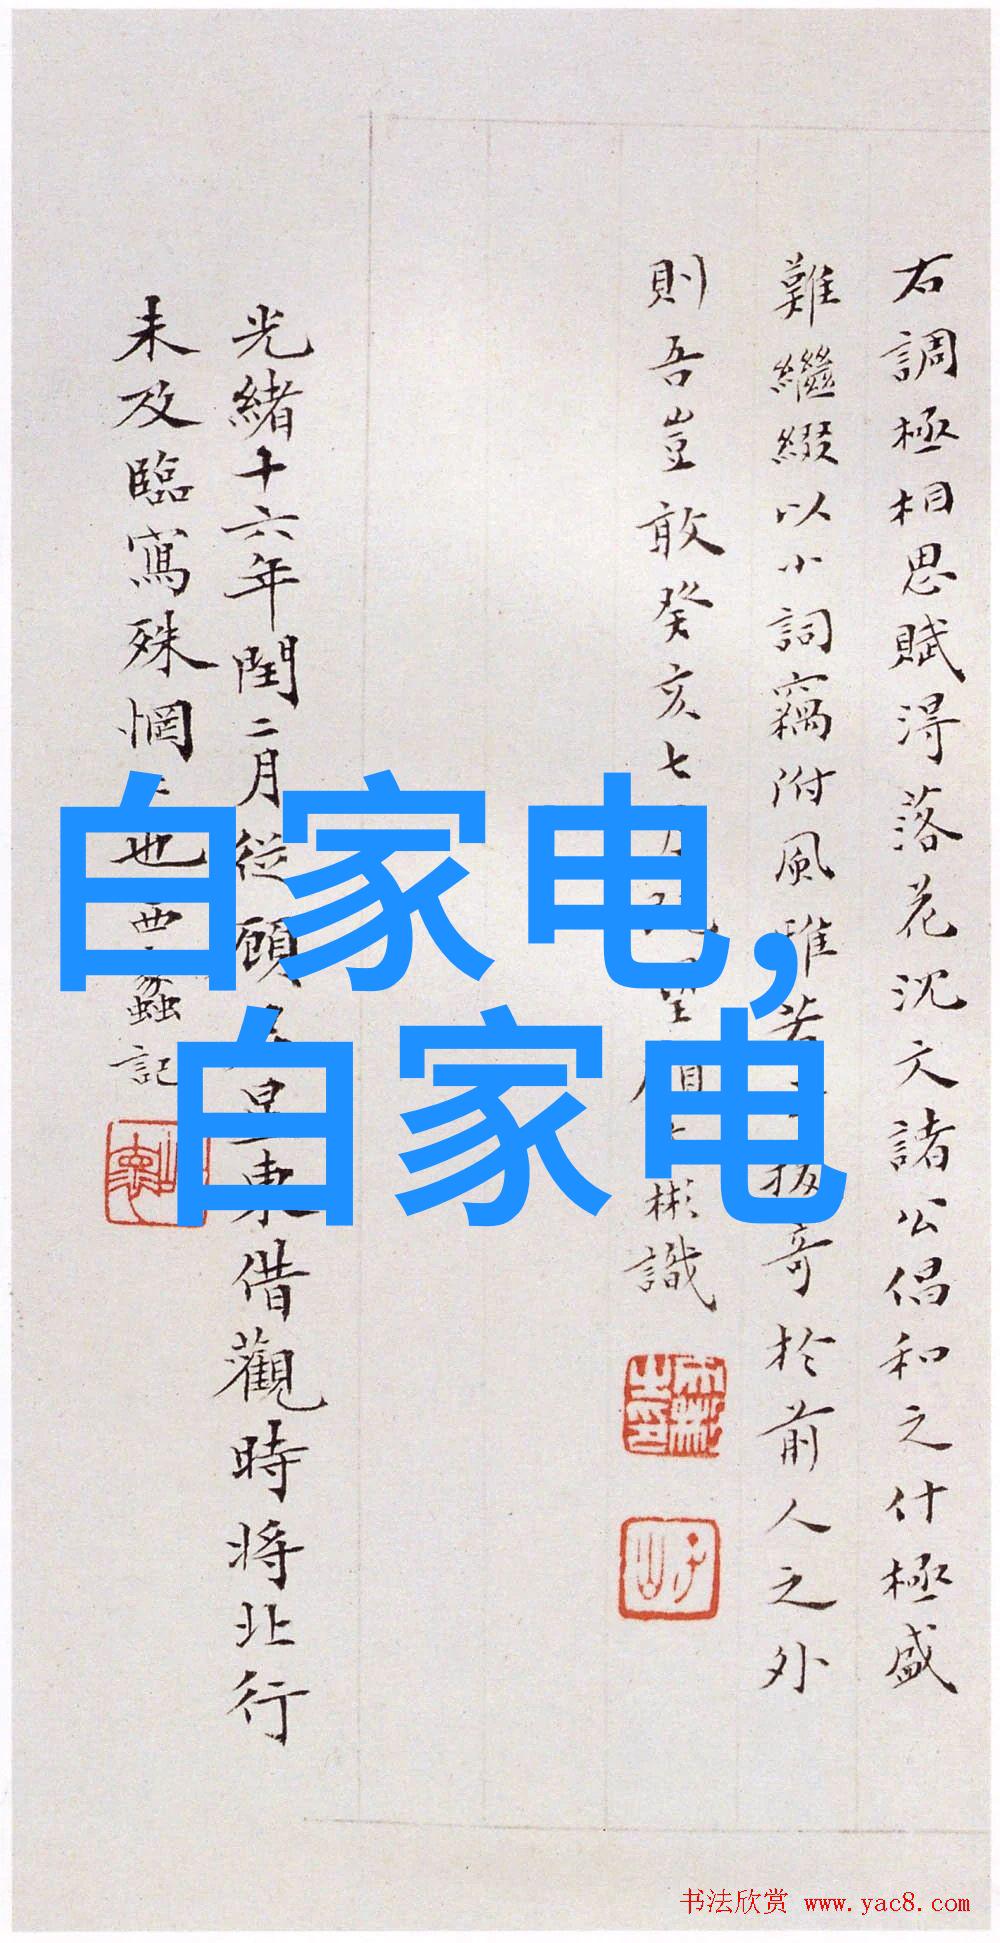 右調極相思賦得落花沈文諸公倡和之什極盛
難繼綴以小詞竊附風雅若抜奇於前人之外
則吾豈敢癸亥七月望彬識
光緒十六年閏二月從顧東借觀時將北行
未及臨寫殊惘也西蠡記
白家电,
白家电
书法欣赏 www.yac8.com